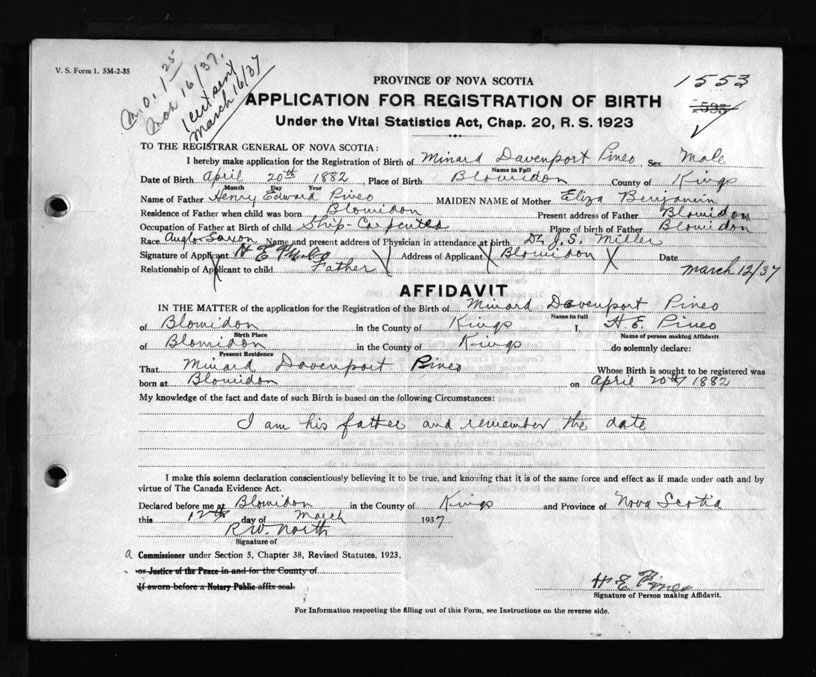 V. S. Form 1. 5M-2-35
M.O. 1 25
March 16/37.
1 cert sent
March 16/37
1553
1535
PROVINCE OF NOVA SCOTIA
APPLICATION FOR REGISTRATION OF BIRTH
Under the Vital Statistics Act, Chap. 20, R. S. 1923
TO THE REGISTRAR GENERAL OF NOVA SCOTIA:
I hereby make application for the Registration of Birth of Minard Davenport Pineo Sex Male
Name in Full
Date of Birth April 20th 1882 Place of Birth Blomidon County of Kings
Month Day Year
Name of Father Henry Edward Pineo MAIDEN NAME of Mother Eliza Benjamin
Residence of Father when child was born Blomidon Present address of Father Blomidon
Occupation of Father at Birth of child Ship-Carpenter Place of birth of Father Blomidon
Race Anglo Saxon Name and present address of Physician in attendance at birth Dr J. S. Miller
Signature of Applicant H E Pineo Address of Applicant Blomidon Date March 12/37
Relationship of Applicant to child Father
AFFIDAVIT
IN THE MATTER of the application for the Registration of the Birth of Minard Davenport Pineo
Name in full
of Blomidon in the County of Kings I, H. E. Pineo
Birth Place Name of person making Affidavit
of Blomidon in the County of Kings do solemnly declare:
Present Residence
That Minard Davenport Pineo Whose Birth is sought to be registered was
born at Blomidon on April 20th 1882
My knowledge of the fact and date of such Birth is based on the following Circumstances:
I am his father and remember the date
I make this solemn declaration conscientiously believing it to be true, and knowing that it is of the same force and effect as if made under oath and by
virtue of The Canada Evidence Act.
Declared before me at Blomidon in the County of Kings and Province of Nova Scotia
this 12th day of March 1937
R.W. North
Signature of
a Commissioner under Section 5, Chapter 38, Revised Statutes, 1923,
or Justice of the Peace in and for the County of
If sworn before a Notary Public affix seal.
H E Pineo
Signature of Person making Affidavit.
For Information respecting the filling out of this Form, see Instructions on the reverse side.